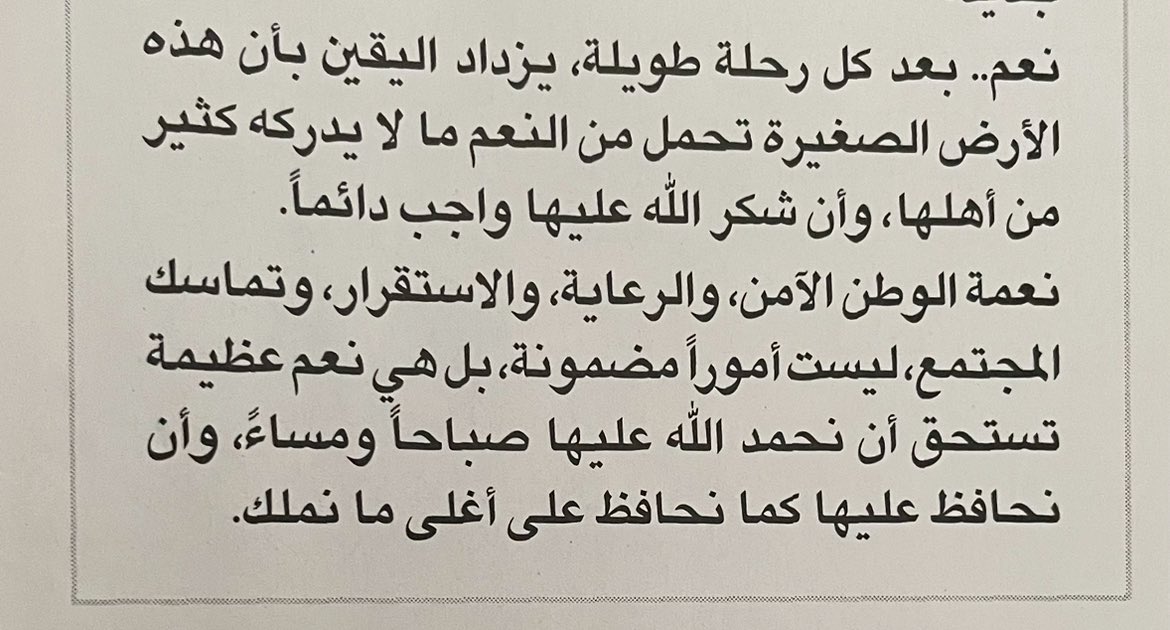 نعم.. بعد كل رحلة طويلة، يزداد اليقين بأن هذه
الأرض الصغيرة تحمل من النعم ما لا يدركه كثير
من أهلها، وأن شكر الله عليها واجب دائماً.
نعمة الوطن الآمن، والرعاية، والاستقرار، وتماسك
المجتمع، ليست أموراً مضمونة، بل هي نعم عظيمة
تستحق أن نحمد الله عليها صباحاً ومساءً، وأن
نحافظ عليها كما نحافظ على أغلى ما نملك.